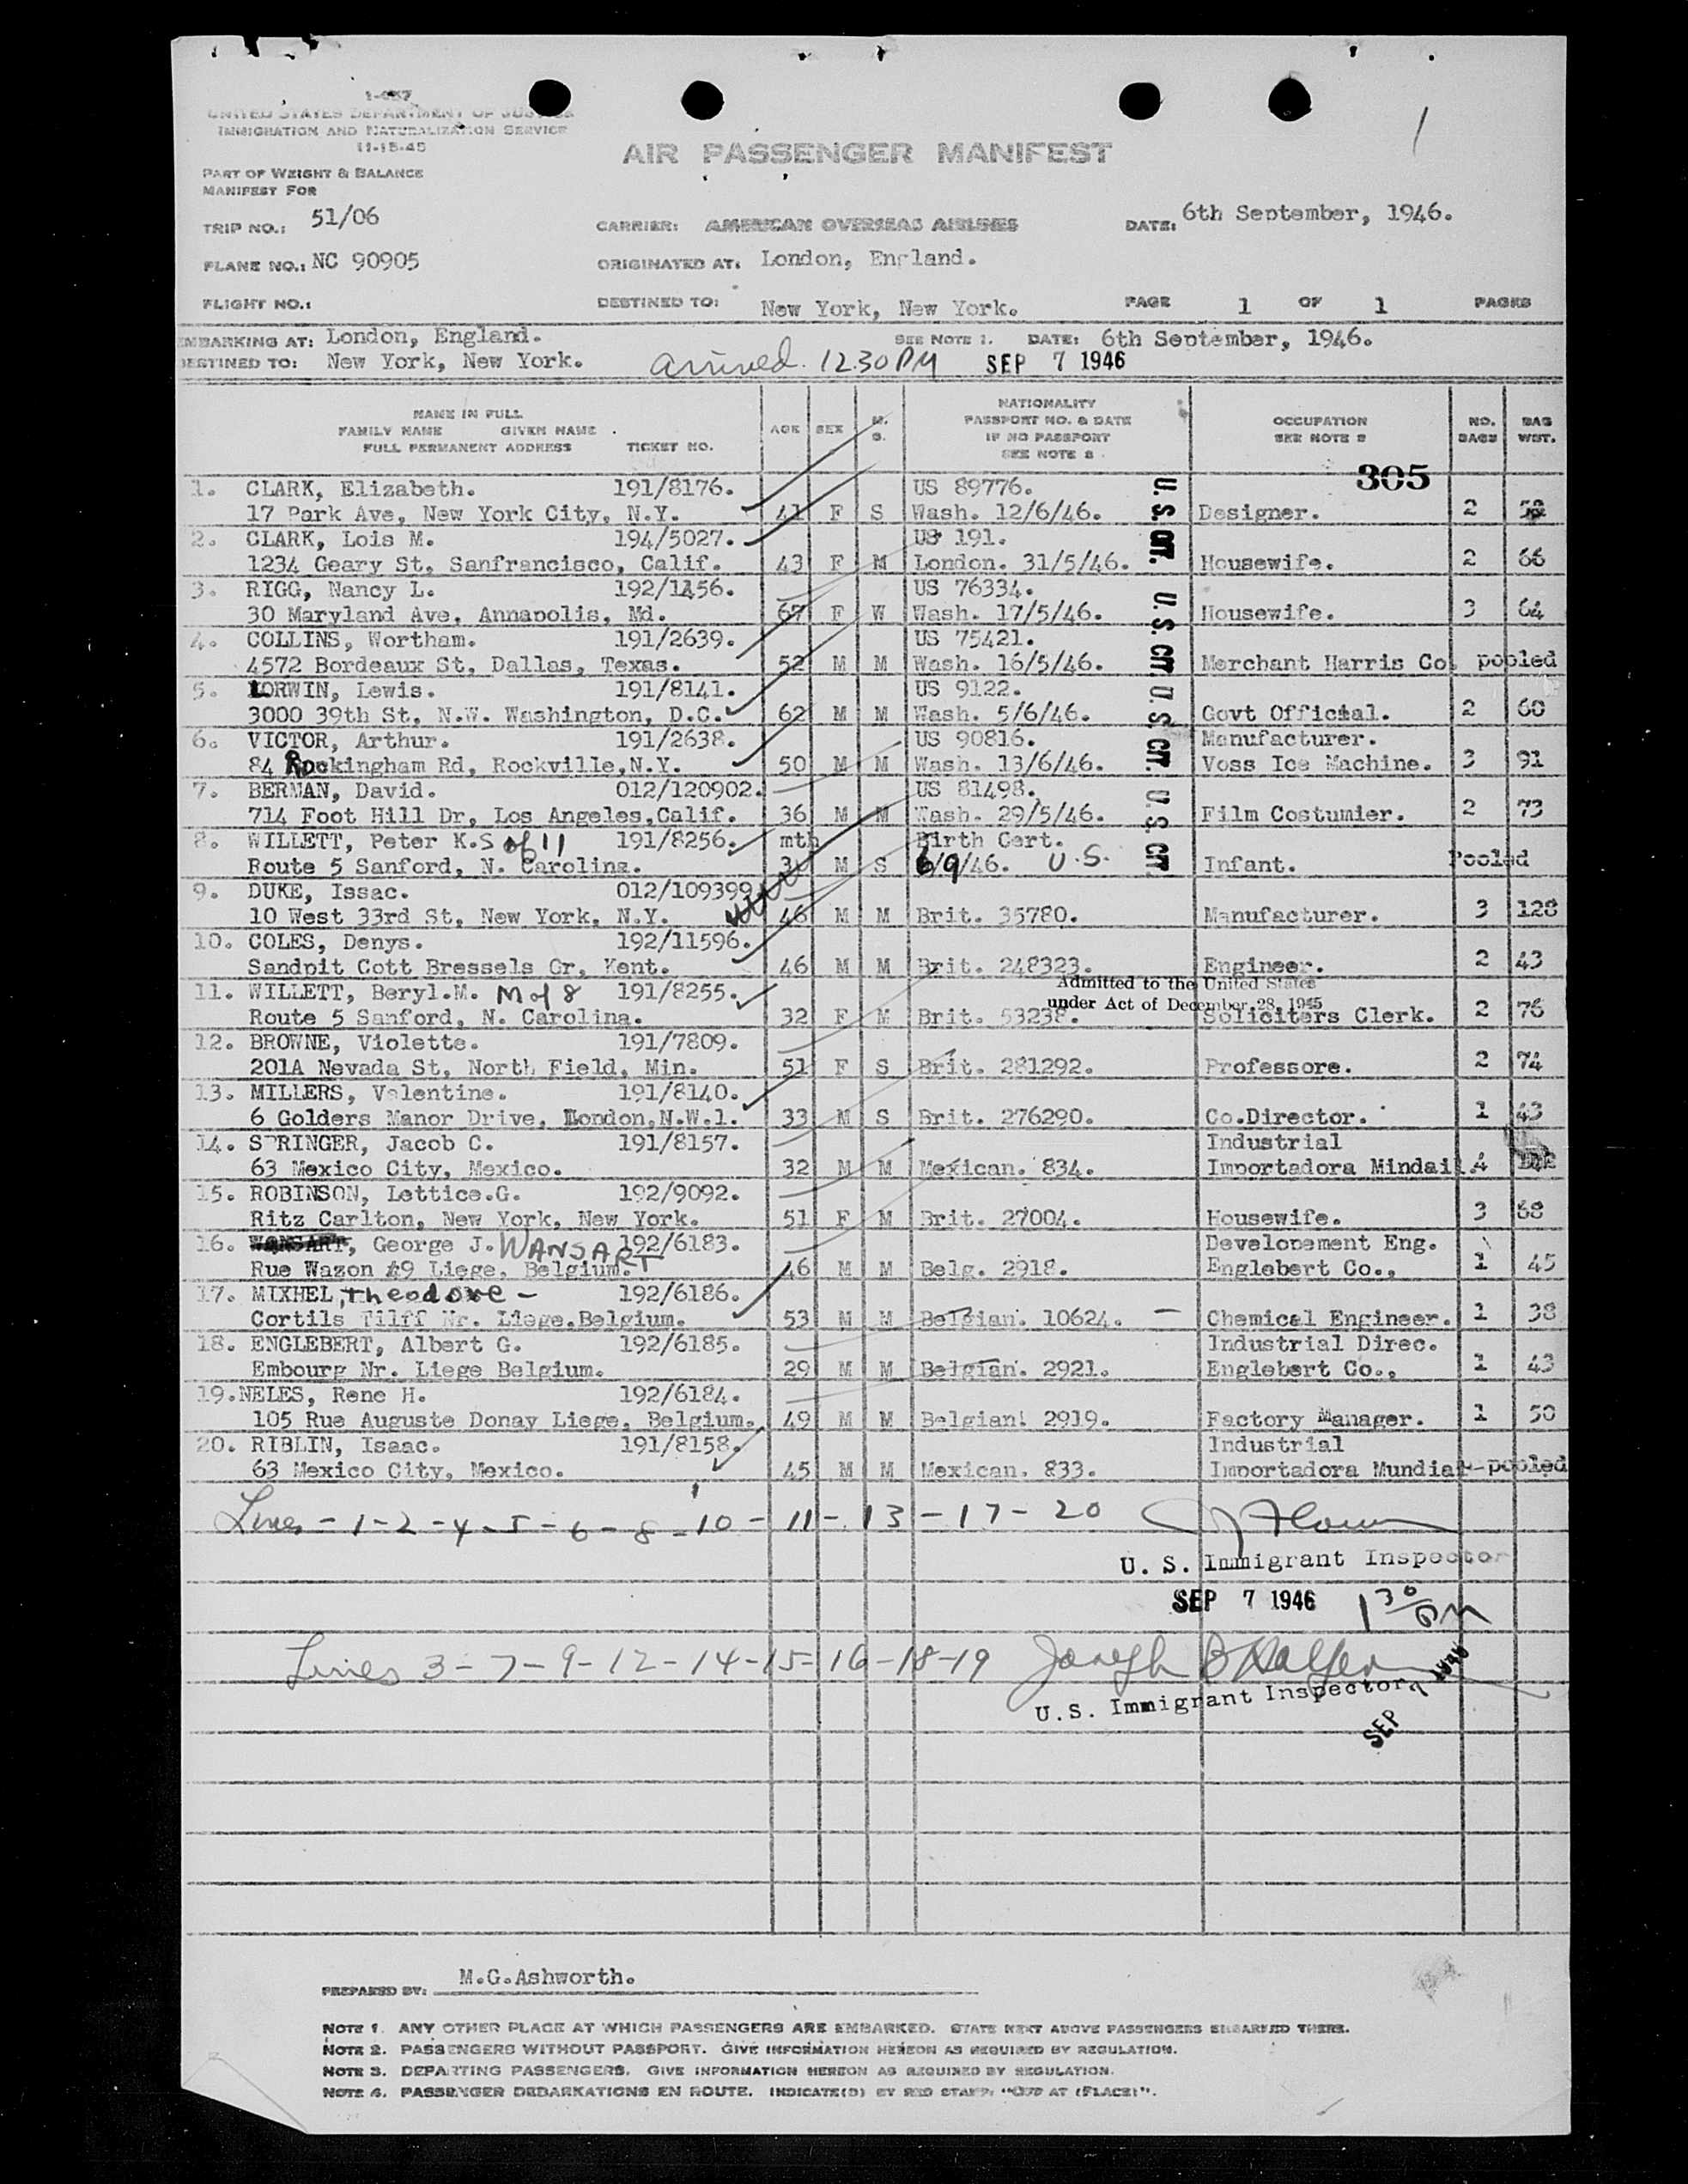 1-457
UNITED STATES DEPARTMENT OF JUSTICE
IMMIGRATION AND NATURALIZATION SERVICE
11-15-45
AIR PASSENGER MANIFEST
PART OF WEIGHT & BALANCE
MANIFEST FOR
TRIP NO.: 51/06 CARRIER: AMERICAN OVERSEAS AIRLINES DATE: 6th September, 1946.
PLANE NO.: NC 90905 ORIGINATED AT: London, England.
FLIGHT NO.: DESTINED TO: New York, New York. PAGE 1 OF 1 PAGES
EMBARKING AT: London, England. SEE NOTE 1. DATE: 6th September, 1946.
DESTINED TO: New York, New York. arrived 12.30 PM SEP 7 1946
NAME IN FULL
FAMILY NAME GIVEN NAME
FULL PERMANENT ADDRESS TICKET NO. AGE SEX M. S. NATIONALITY PASSPORT NO. & DATE IF NO PASSPORT SEE NOTE 2 OCCUPATION SEE NOTE 2 NO. BAGS BAG WGT.
305
1. CLARK, Elizabeth. 191/8176. US 89776.
17 Park Ave, New York City, N.Y. 41 F S Wash. 12/6/46. U.S. CIT. Designer. 2
2. CLARK, Lois M. 194/5027. US 191.
1234 Geary St, Sanfrancisco, Calif. 43 F M London. 31/5/46. Housewife. 2 66
3. RIGG, Nancy L. 192/1156. US 76334.
30 Maryland Ave, Annapolis, Md. 67 F W Wash. 17/5/46. U.S. CIT. Housewife. 3 64
4. COLLINS, Wortham. 191/2639. US 75421.
4572 Bordeaux St, Dallas, Texas. 52 M M Wash. 16/5/46. Merchant Harris Co. pooled
5. LORWIN, Lewis. 191/8141. US 9122.
3000 39th St, N.W. Washington, D.C. 62 M M Wash. 5/6/46. U.S. CIT. Govt Official. 2 60
6. VICTOR, Arthur. 191/2638. US 90816. Manufacturer.
84 Rockingham Rd, Rockville,N.Y. 50 M M Wash. 13/6/46. Voss Ice Machine. 3 91
7. BERMAN, David. 012/120902. US 81498.
714 Foot Hill Dr, Los Angeles,Calif. 36 M M Wash. 29/5/46. U.S. CIT. Film Costumier. 2 73
8. WILLETT, Peter K. S of 11 191/8256. mth Birth Cert.
Route 5 Sanford, N. Carolina. 3 M S 6/9/46. U.S. Infant. Pooled
9. DUKE, Issac. 012/109399
10 West 33rd St, New York, N.Y. 46 M M Brit. 35780. Manufacturer. 3 128
10. COLES, Denys. 192/11596.
Sandpit Cott Bressels Gr, Kent. 46 M M Brit. 248323. Engineer. 2 43
Admitted to the United States
under Act of December 28, 1945
11. WILLETT, Beryl.M. M of 8 191/8255.
Route 5 Sanford, N. Carolina. 32 F M Brit. 53238. Soliciters Clerk. 2 76
12. BROWNE, Violette. 191/7809.
201A Nevada St, North Field, Min. 51 F S Brit. 281292. Professore. 2 74
13. MILLERS, Valentine. 191/8140.
6 Golders Manor Drive, London,N.W.1. 33 M S Brit. 276290. Co.Director. 1 43
14. SPRINGER, Jacob C. 191/8157. Industrial
63 Mexico City, Mexico. 32 M M Mexican. 834. Importadora Mindail. 4
15. ROBINSON, Lettice.G. 192/9092.
Ritz Carlton, New York, New York. 51 F M Brit. 27004. Housewife. 3 68
16. George J. WANSART 192/6183. Developement Eng.
Rue Wazon 49 Liege, Belgium. 46 M M Belg. 2918. Englebert Co., 1 45
17. MIXHEL, Theodore - 192/6186.
Cortils Tilff Nr. Liege,Belgium. 53 M M Belgian. 10624. — Chemical Engineer. 1 38
18. ENGLEBERT, Albert G. 192/6185. Industrial Direc.
Embourg Nr. Liege Belgium. 29 M M Belgian. 2921. Englebert Co., 1 43
19.NELES, Rene H. 192/6184.
105 Rue Auguste Donay Liege, Belgium. 49 M M Belgian. 2919. Factory Manager. 1 50
20. RIBLIN, Isaac. 191/8158. Industrial
63 Mexico City, Mexico. 45 M M Mexican. 833. Importadora Mundial pooled
Lines - 1 - 2 - 4 - 5 - 6 - 8 - 10 - 11 - 13 - 17 - 20
U. S. Immigrant Inspector
SEP 7 1946 1 30 PM
Lines 3 - 7 - 9 - 12 - 14 - 15 - 16 - 18 - 19 Joseph B Halpern
U.S. Immigrant Inspector
SEP 1946
PREPARED BY: M.G.Ashworth.
NOTE 1. ANY OTHER PLACE AT WHICH PASSENGERS ARE EMBARKED. STATE NEXT ABOVE PASSENGERS EMBARKED THERE.
NOTE 2. PASSENGERS WITHOUT PASSPORT. GIVE INFORMATION HEREON AS REQUIRED BY REGULATION.
NOTE 3. DEPARTING PASSENGERS. GIVE INFORMATION HEREON AS REQUIRED BY REGULATION.
NOTE 4. PASSENGER DEBARKATIONS EN ROUTE. INDICATE(D) BY RED STAMP: "OFF AT (PLACE)".